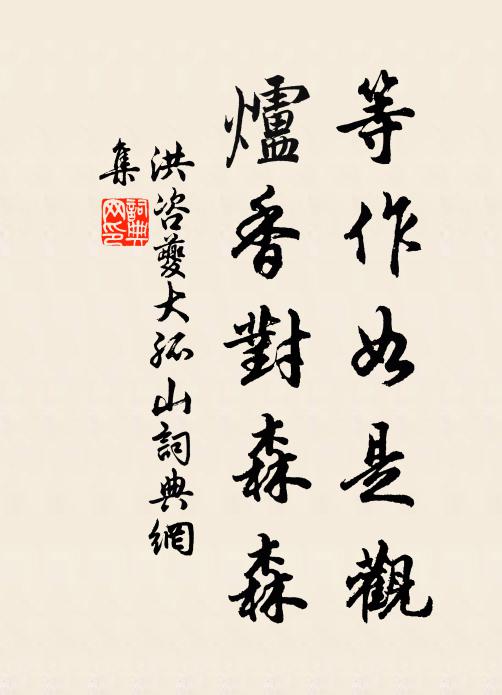 等作如是觀
爐香對森森
洪咨夔大孤山詞典網
集
詞典網印